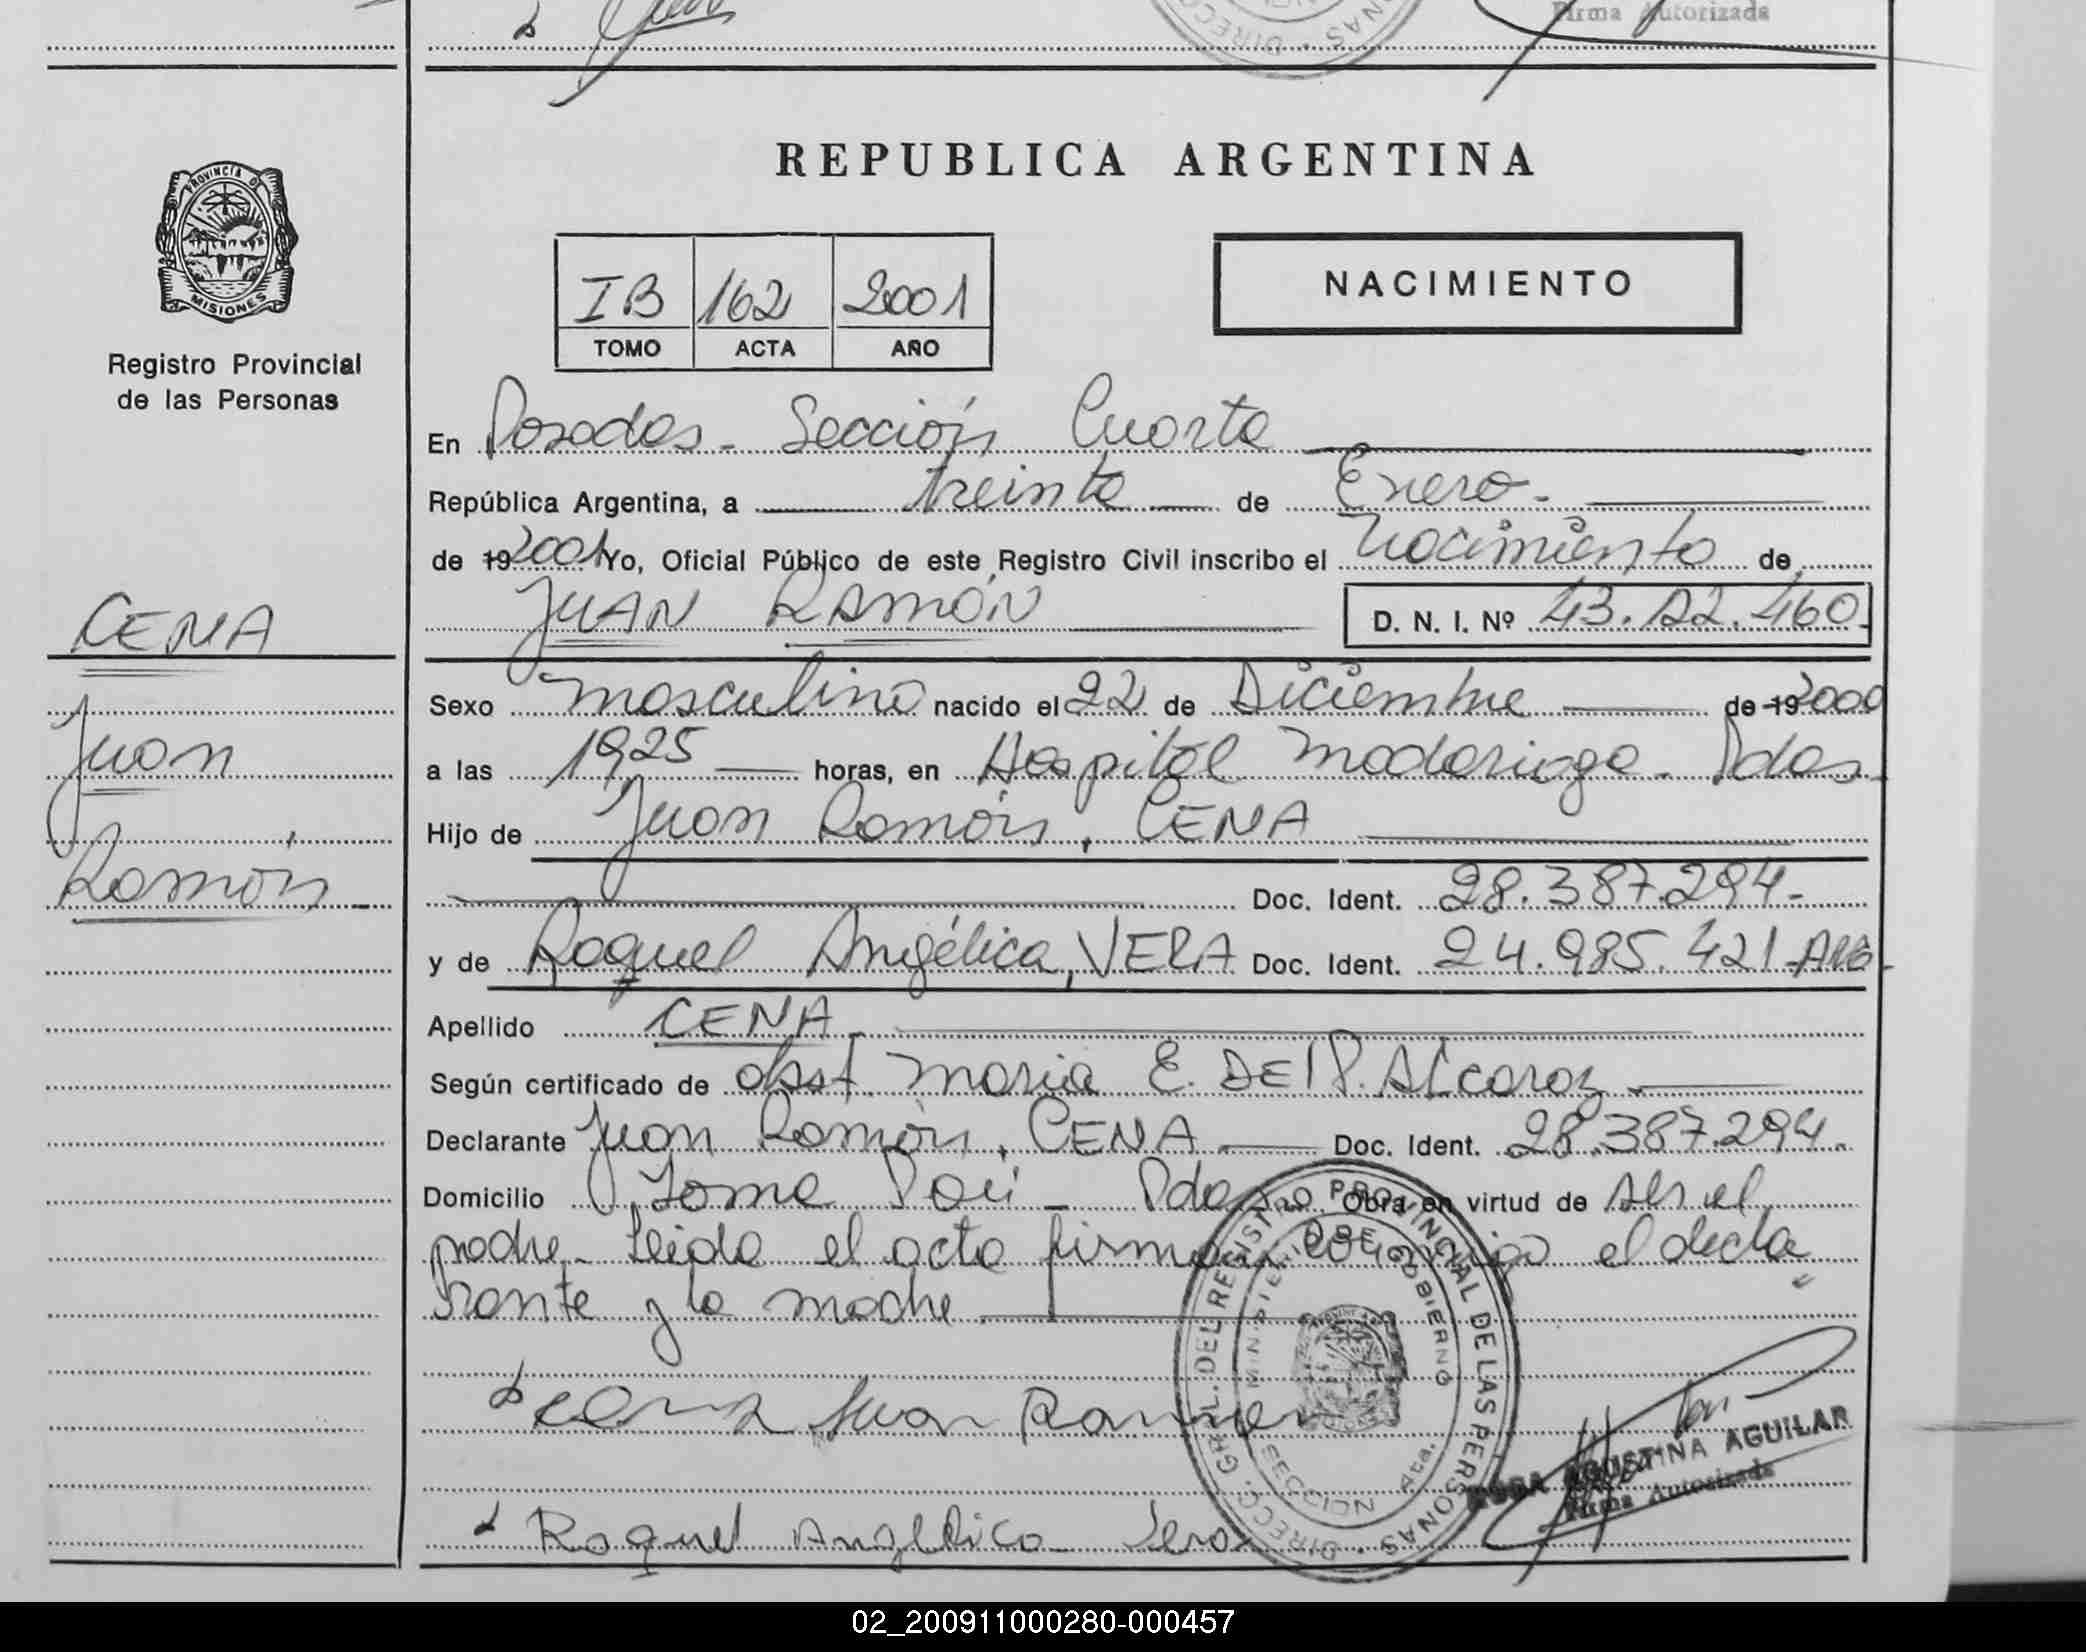 Firma Autorizada
REPUBLICA ARGENTINA
PROVINCIA DE
MISIONES
Registro Provincial
de las Personas
IB 162 2001
TOMO ACTA AÑO
NACIMIENTO
En Posadas - Sección Cuarta
República Argentina, a treinta de Enero.
de 19 2001 Yo, Oficial Público de este Registro Civil inscribo el Nacimiento de
JUAN RAMÓN D. N. I. Nº 43. 460
CENA
Juan
Ramón
Sexo masculino nacido el 22 de Diciembre de 19 2000
a las 1925 horas, en Hospital Madariaga - Pdas
Hijo de Juan Ramón, CENA
Doc. Ident. 28.387.294-
y de Raquel Angélica, VERA Doc. Ident. 24.985.421 ARG-
Apellido CENA
Según certificado de obst. Maria E. DEl P. Alcaraz
Declarante Juan Ramón, CENA Doc. Ident. 28.387.294
Domicilio Obra en virtud de ser el
padre - Leida el acta firman conmigo el decla
rante y la madre
cena Juan Ramon
Raquel Angelica Vera
DIRECC. GRAL. DEL REGISTRO PROVINCIAL DE LAS PERSONAS
MINISTERIO DE GOBIERNO
SECCION 4ta.
AGUSTINA AGUILAR
Firma Autorizada
02_200911000280-000457